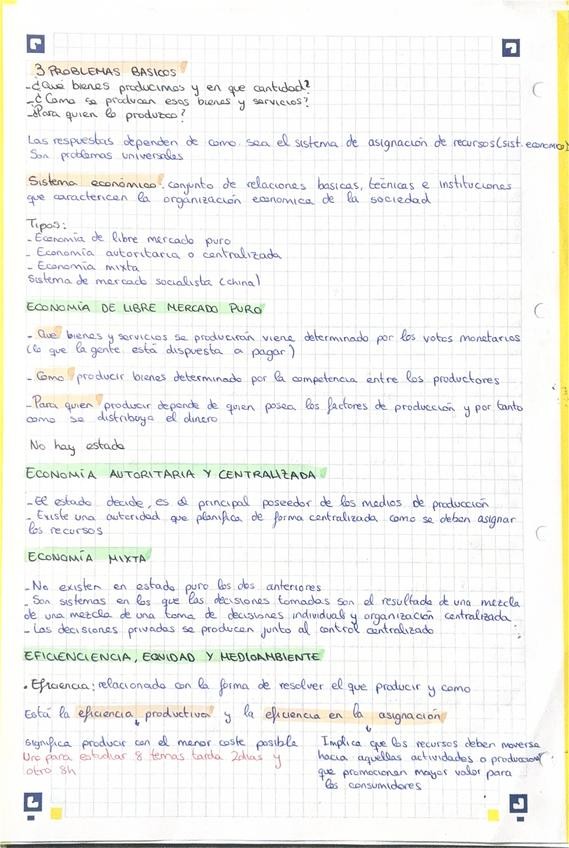 3 PROBLEMAS BASICOS
-¿Qué bienes producimos y en que cantidad?
-¿Como se producen esos bienes y servicios?
-¿Para quien lo produzco?
Las respuestas dependen de como sea el sistema de asignación de recursos (sist. economico)
Son problemas universales
Sistema económico: conjunto de relaciones basicas, técnicas e instituciones
que caractericen la organización economica de la sociedad
Tipos:
- Economía de libre mercado puro
- Economía autoritaria o centralizada
- Economía mixta
Sistema de mercado socialista (china)
ECONOMÍA DE LIBRE MERCADO PURO
- Que bienes y servicios se producirán viene determinado por los votos monetarios
(lo que la gente está dispuesta a pagar)
- Como producir bienes determinado por la competencia entre los productores
- Para quien producir depende de quien posea los factores de producción y por tanto
como se distribuya el dinero
No hay estado
ECONOMÍA AUTORITARIA Y CENTRALIZADA
- El estado decide, es el principal poseedor de los medios de producción
- Existe una autoridad que planifica de forma centralizada como se deben asignar
los recursos
ECONOMÍA MIXTA
- No existen en estado puro los dos anteriores
- Son sistemas en los que las decisiones tomadas son el resultado de una mezcla
de una mezcla de una toma de decisiones individual y organización centralizada
- Las decisiones privadas se producen junto al control centralizado
EFICIENCIENCIA, EQUIDAD Y MEDIOAMBIENTE
• Eficiencia: relacionado con la forma de resolver el que producir y como
Está la eficiencia productiva y la eficiencia en la asignación
significa producir con el menor coste posible
Uno para estudiar 8 temas tarda 2dias y
otro 8h
Implica que los recursos deben moverse
hacia aquellas actividades o produccion
que promocionen mayor valor para
los consumidores